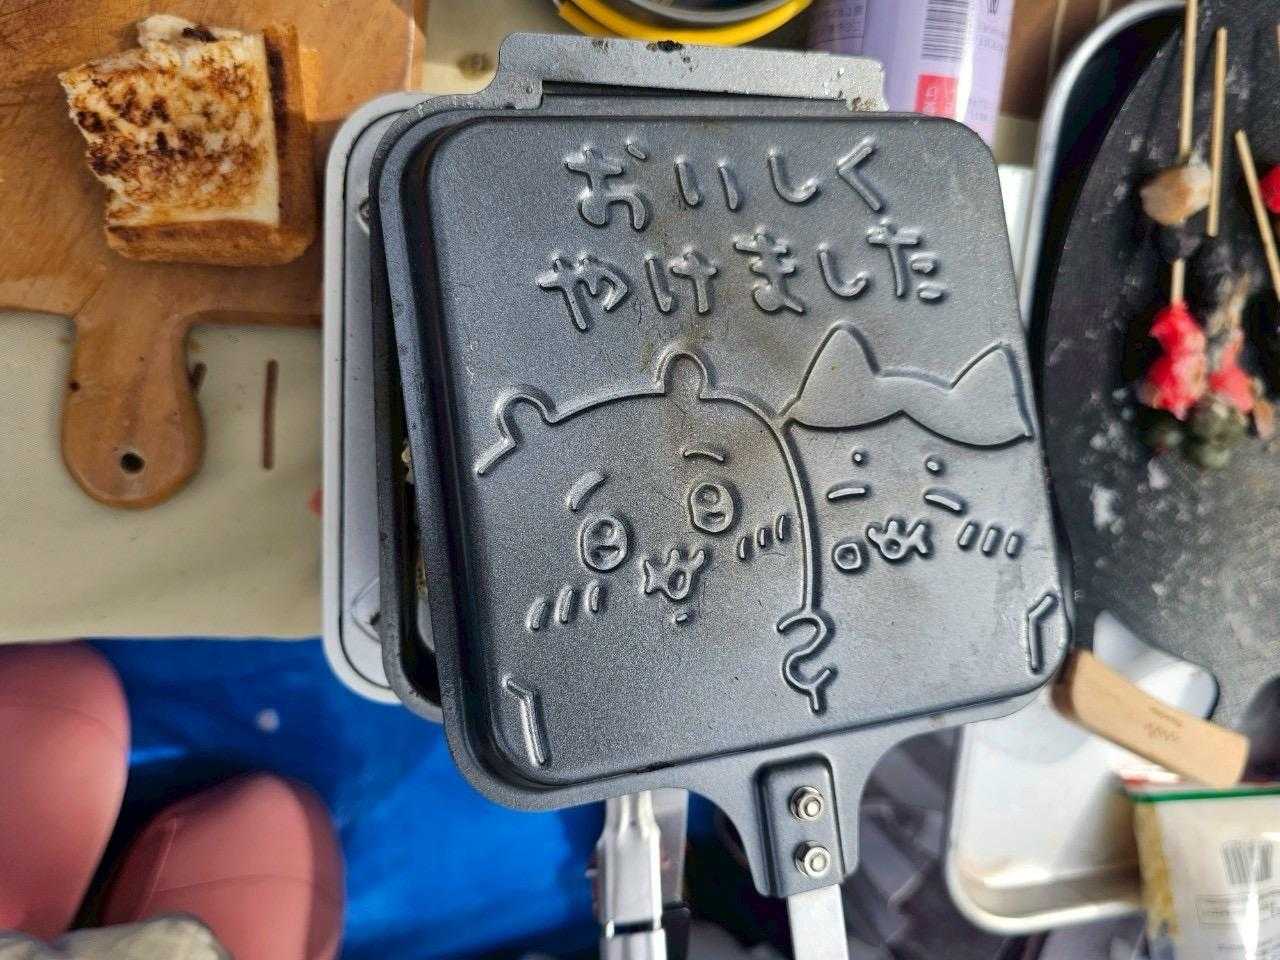 おいしく
やけました